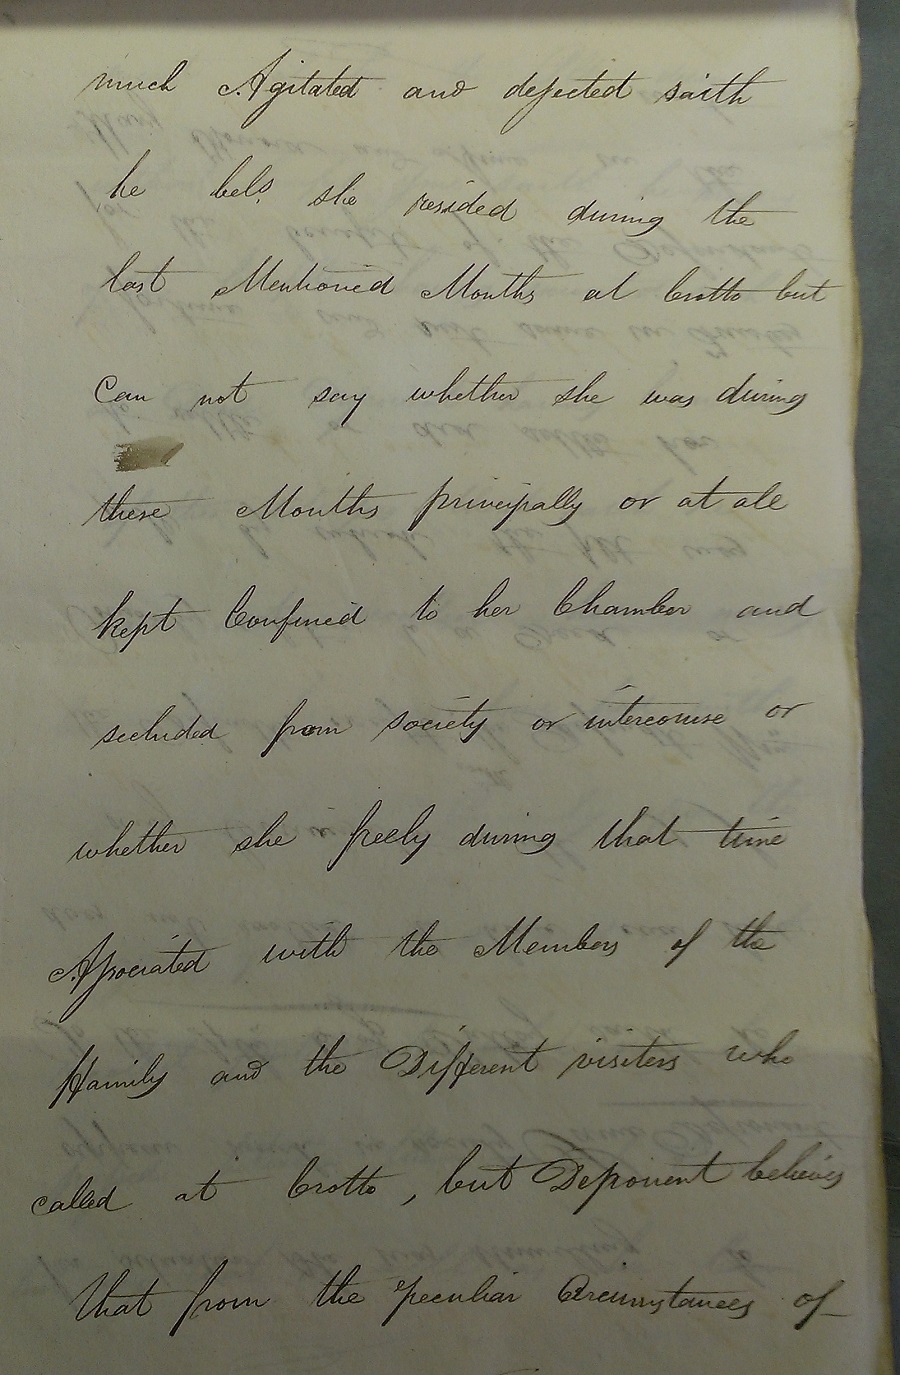 much Agitated and dejected saith
he bels. she resided during the
last Mentioned Months at Crotto but
Can not say whether she was during
these Months principally or at all
kept Confined to her Chamber and
secluded from society or intercourse or
whether she freely during that time
Associated with the Members of the
ffamily and the Different visiters who
called at Crotto, but Deponent believes
that from the peculiar Circumstances of